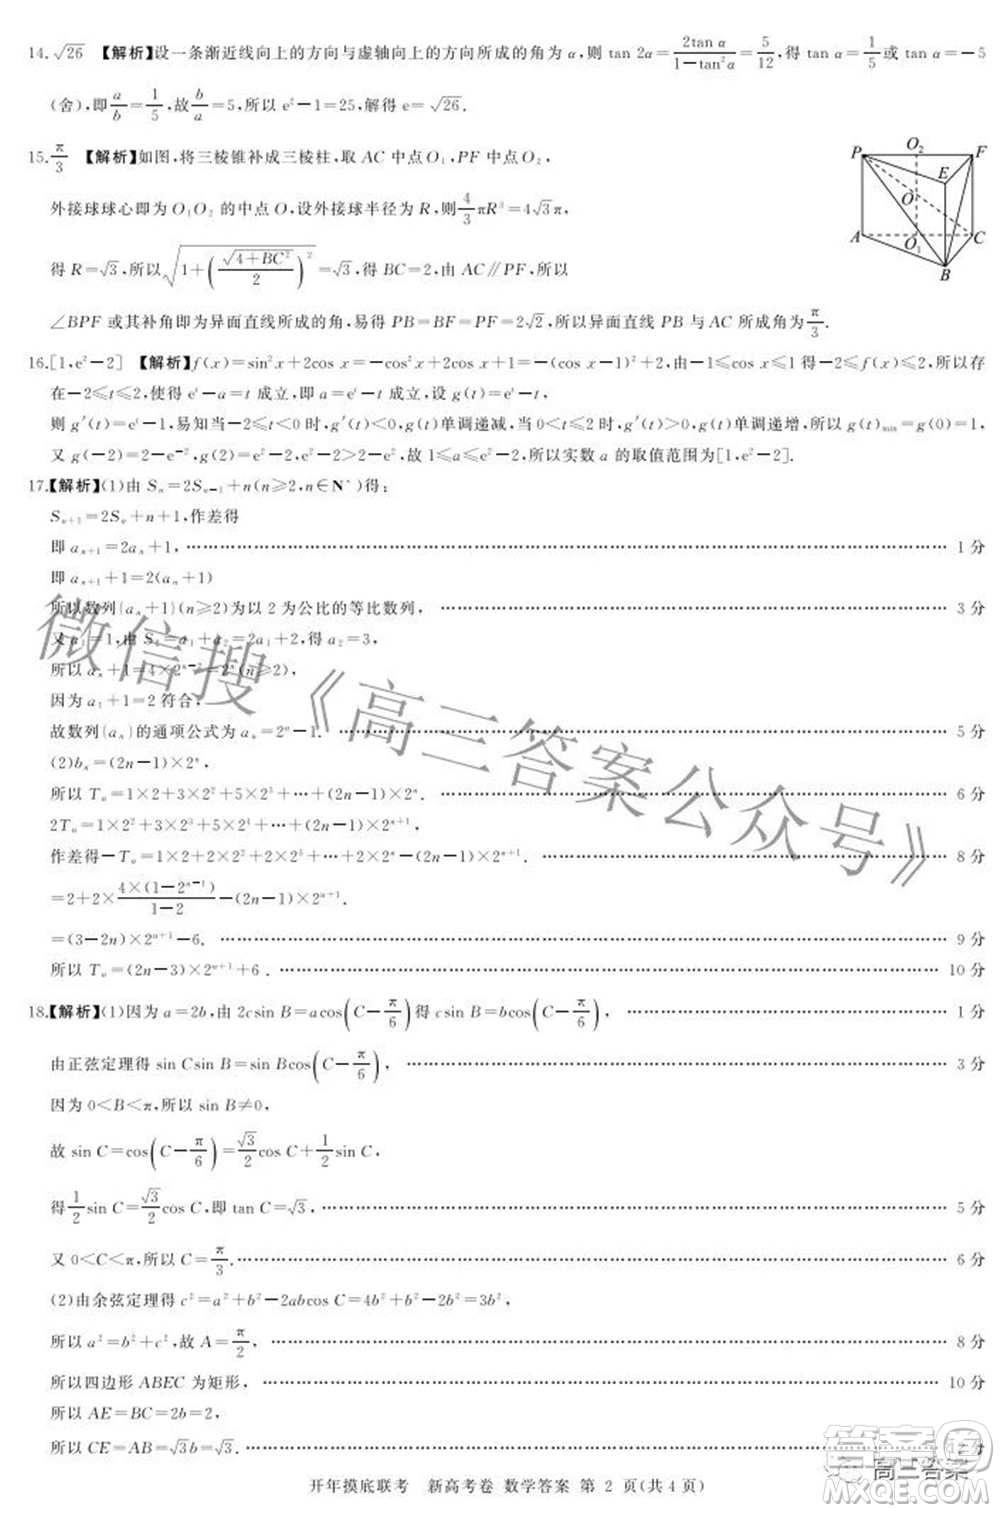 14.√26 【解析】设一条渐近线向上的方向与虚轴向上的方向所成的角为 α,则 tan 2α=2tan α/(1-tan²α)=5/12,得 tan α=1/5或 tan α=-5
(舍),即a/b=1/5,故b/a=5,所以 e²-1=25,解得 e=√26.
15.π/3 【解析】如图,将三棱锥补成三棱柱,取 AC 中点O₁,PF 中点 O₂,
外接球球心即为 O₁O₂ 的中点 O,设外接球半径为 R,则4/3πR³=4√3π,
得 R=√3,所以√(1+(√(4+BC²)/2)²)=√3,得 BC=2,由 AC∥PF,所以
∠BPF 或其补角即为异面直线所成的角,易得 PB=BF=PF=2√2,所以异面直线 PB 与 AC 所成角为π/3.
P O₂ F E O A O₁ C B
16.[1,e²-2] 【解析】f(x)=sin²x+2cos x=-cos²x+2cos x+1=-(cos x-1)²+2,由-1≤cos x≤1得-2≤f(x)≤2,所以存
在-2≤t≤2,使得 eᵗ-a=t 成立,即 a=eᵗ-t 成立,设 g(t)=eᵗ-t,
则 g′(t)=eᵗ-1,易知当-2≤t<0 时,g′(t)<0,g(t)单调递减,当 0<t≤2 时,g′(t)>0,g(t)单调递增,所以 g(t)min=g(0)=1,
又 g(-2)=2+e⁻²,g(2)=e²-2,g(-2)<g(2),故 1≤a≤e²-2,所以实数 a 的取值范围为[1,e²-2].
17.【解析】(1)由 Sₙ=2Sₙ₋₁+n(n≥2,n∈N*)得:
Sₙ₊₁=2Sₙ+n+1,作差得
即 aₙ₊₁=2aₙ+1,……1 分
即 aₙ₊₁+1=2(aₙ+1)
所以数列{aₙ+1}(n≥2)为以 2 为公比的等比数列,……3 分
又 a₁=1,由 S₂=a₁+a₂=2a₁+2,得 a₂=3,
所以 aₙ+1=4×2ⁿ⁻²=2ⁿ(n≥2),
因为 a₁+1=2 符合,
故数列{aₙ}的通项公式为 aₙ=2ⁿ-1.……5 分
(2)bₙ=(2n-1)×2ⁿ,
所以 Tₙ=1×2+3×2²+5×2³+…+(2n-1)×2ⁿ,……6 分
2Tₙ=1×2²+3×2³+5×2⁴+…+(2n-1)×2ⁿ⁺¹,
作差得-Tₙ=1×2+2×2²+2×2³+…+2×2ⁿ-(2n-1)×2ⁿ⁺¹……8 分
=2+2×4×(1-2ⁿ⁻¹)/(1-2)-(2n-1)×2ⁿ⁺¹.
=(3-2n)×2ⁿ⁺¹-6.……9 分
所以 Tₙ=(2n-3)×2ⁿ⁺¹+6.……10 分
18.【解析】(1)因为 a=2b,由 2csin B=acos(C-π/6)得 csin B=bcos(C-π/6),……1 分
由正弦定理得 sin Csin B=sin Bcos(C-π/6),……3 分
因为 0<B<π,所以 sin B≠0,
故 sin C=cos(C-π/6)=√3/2cos C+1/2sin C,
得1/2sin C=√3/2cos C,即 tan C=√3,……5 分
又 0<C<π,所以 C=π/3.……6 分
(2)由余弦定理得 c²=a²+b²-2abcos C=4b²+b²-2b²=3b²,
所以 a²=b²+c²,故 A=π/2,……8 分
所以四边形 ABEC 为矩形,……10 分
所以 AE=BC=2b=2,
所以 CE=AB=√3b=√3.……12 分
开年摸底联考 新高考卷 数学答案 第 2 页(共 4 页)
微信搜《高三答案公众号》
答案圈
高三答案
MXQE.COM